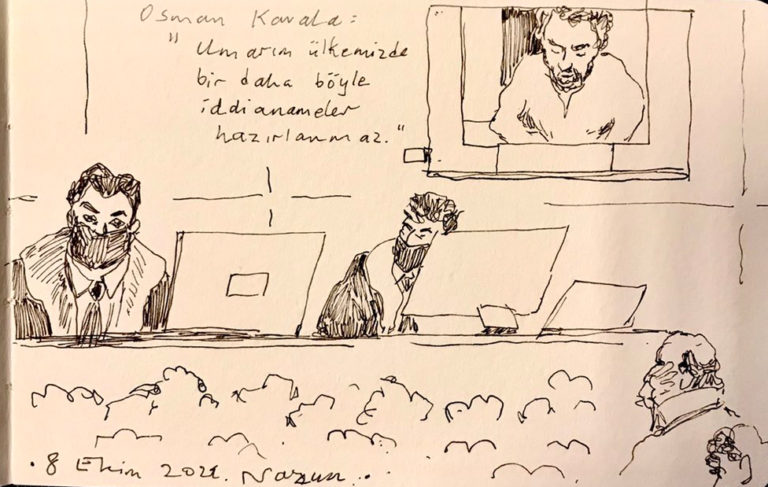 Osman Kavala:
" Umarım ülkemizde
bir daha böyle
iddianameler
hazırlanmaz."
. 8 Ekim 2021.